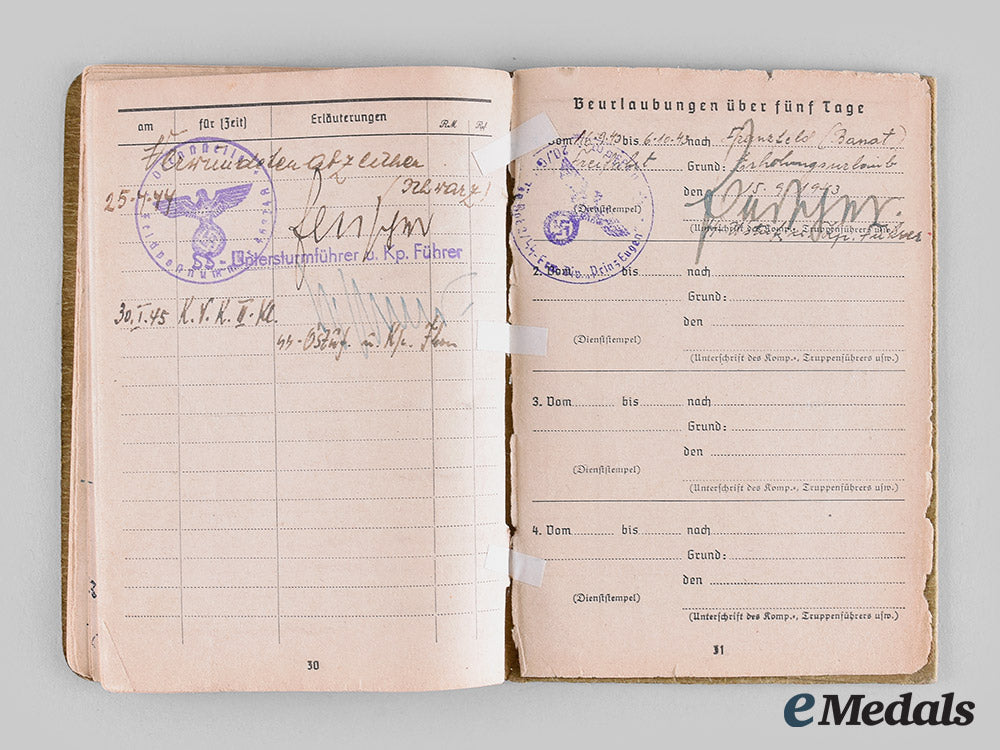 am für (Zeit) Erläuterungen R.M. Rpf
Verwundetenabzeichen
25.4.44 (Schwarz)
SS-Untersturmführer u. Kp. Führer
30.I.45 K.V.K. II. Kl.
SS-Ostuf. u. Kp.
30
Beurlaubungen über fünf Tage
Vom 16.9.43 bis 6.10.43 nach Franzfeld (Banat)
Grund: Erholungsurlaub
den 15.9.1943
(Dienststempel)
(Unterschrift des Komp.-, Truppenführers usw.)
Kp. Führer
"Prinz Eugen"
2. Vom bis nach
Grund:
den
(Dienststempel)
(Unterschrift des Komp.-, Truppenführers usw.)
3. Vom bis nach
Grund:
den
(Dienststempel)
(Unterschrift des Komp.-, Truppenführers usw.)
4. Vom bis nach
Grund:
den
(Dienststempel)
(Unterschrift des Komp.-, Truppenführers usw.)
31
eMedals